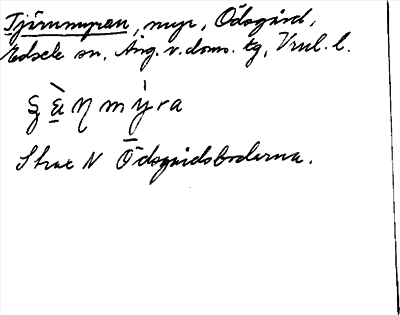 Tjärnmyran, myr, Ödsgård,
Edsele sn, Ång. v. doms. tg, Vrul. l.
ʂ ä̀ η m y̍ r a
Strax N Ödsgårdsbodarna.